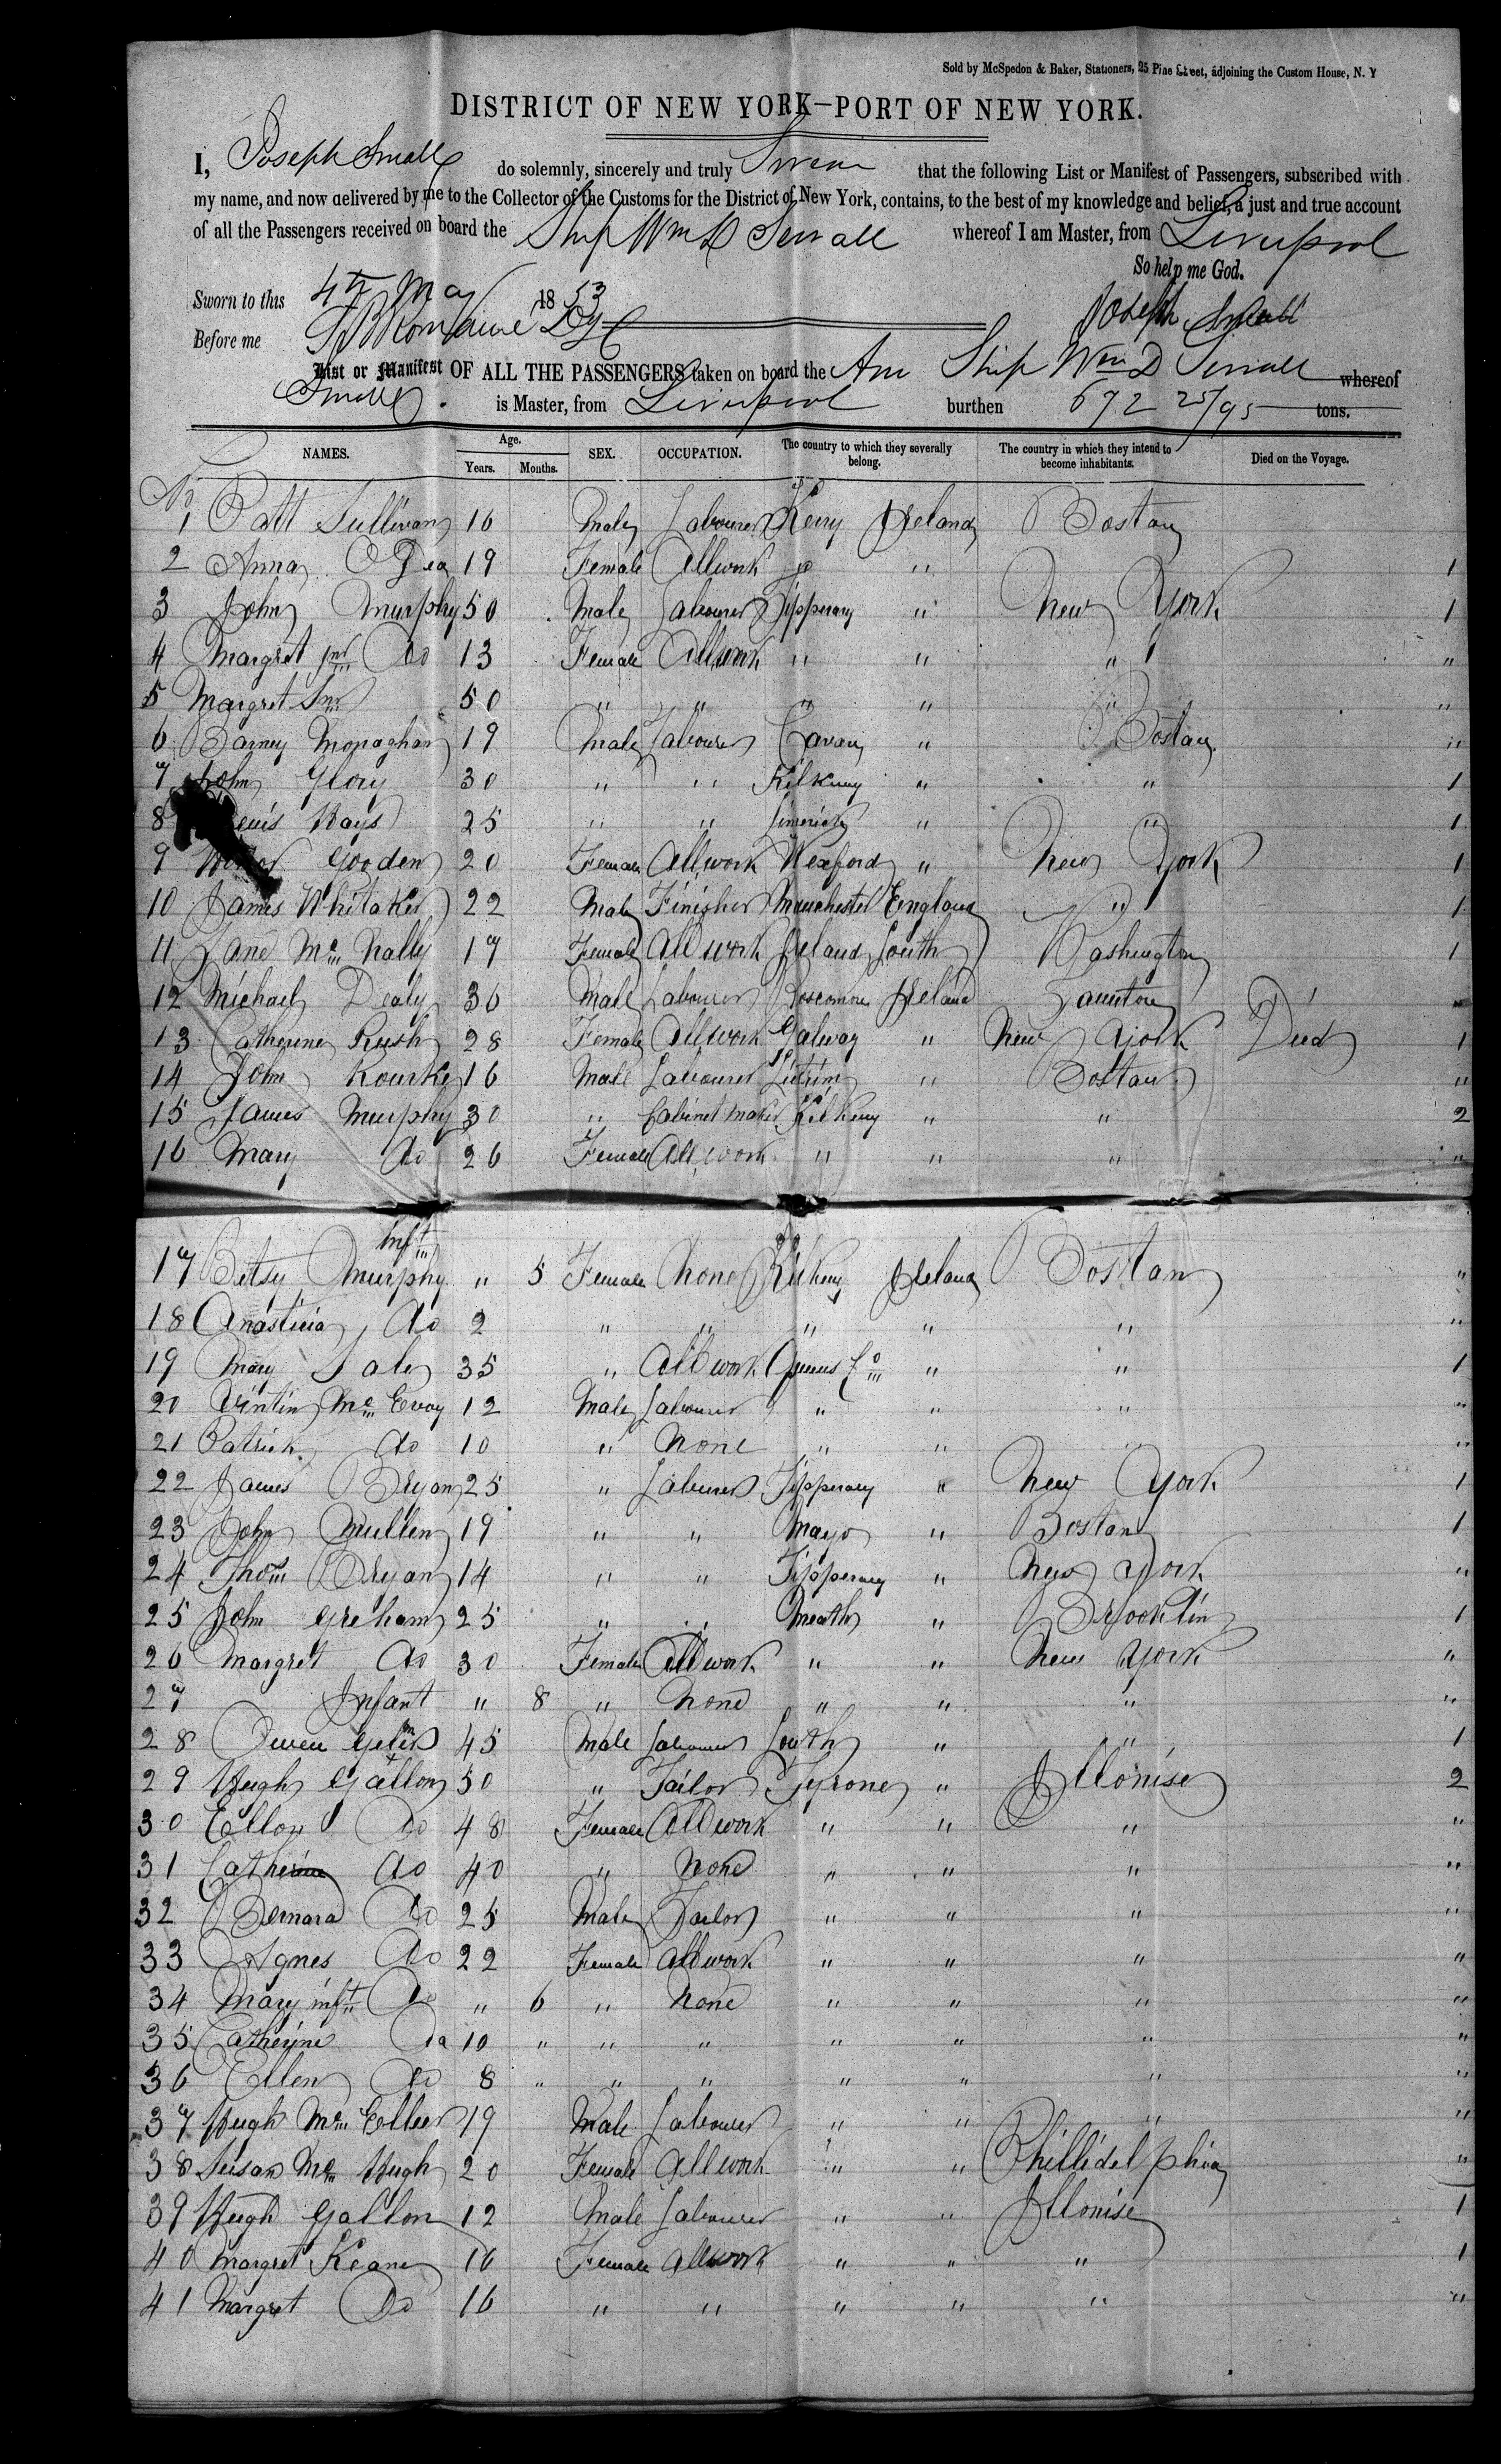 Sold by McSpedon & Baker, Stationers, 25 Pine Street, adjoining the Custom House, N. Y
DISTRICT OF NEW YORK—PORT OF NEW YORK.
I, Joseph Small do solemnly, sincerely and truly Swear that the following List or Manifest of Passengers, subscribed with
my name, and now delivered by me to the Collector of the Customs for the District of New York, contains, to the best of my knowledge and belief, a just and true account
of all the Passengers received on board the Ship Wm D Sewall whereof I am Master, from Liverpool
So help me God.
Sworn to this 4th May 1853
Joseph Small
Before me
List or Manifest OF ALL THE PASSENGERS taken on board the Am Ship Wm D Sewall whereof
Small is Master, from Liverpool burthen 672 25/95 tons.
NAMES. Age. Years. Months. SEX. OCCUPATION. The country to which they severally belong. The country in which they intend to become inhabitants. Died on the Voyage.
No
1 Patt Sullivan 16 Male Labourer Kerry Ireland Boston
2 Anna O Dea 19 Female Allwork Do " 1
3 John Murphy 50 Male Labourer Tipperary " New York 1
4 Margret Jnr Do 13 Female Allwork " " " "
5 Margret Snr 50 " " " " " "
6 Barney Monaghan 19 Male Labourer Cavan " Boston "
7 John Glory 30 " " Kilkenny " " 1
8 Hays 25 " " Limerick " " 1
9 Gooden 20 Female Allwork Wexford " New York 1
10 James Whitaker 22 Male Finisher Manchester England " 1
11 Jane Mc Nally 17 Female Allwork Ireland Louth Washington 1
12 Michael Dealy 36 Male Labourer Roscommon Ireland Taunton
13 Catherine Rush 28 Female Allwork Galway " New York Died 1
14 John Rourke 16 Male Labourer Leitrim " Boston "
15 James Murphy 30 " Cabinet maker Kilkenny " " 2
16 Mary Do 26 Female Allwork " " " "
17 Betsy Murphy Inft " 5 Female None Kilkeny Ireland Boston "
18 Anasticia Do 2 " " " " " "
19 Mary Laler 35 " Allwork Queens Co " " 1
20 Vintin Mc Evoy 12 Male Labourer " " " "
21 Patrick Do 10 " None " " " "
22 James Bryan 25 " Labourer Tipperary " New York 1
23 John Mullen 19 " " Mayo " Boston 1
24 Thos Bryan 14 " " Tipperary " New York "
25 John Greham 25 " " Meath " Brooklin 1
26 Margret Do 30 Female Allwork " " New York "
27 Infant " 8 " None " " " "
28 Owen 45 Male Labourer Louth " " 1
29 Hugh Gallon 50 " Tailor Tyrone " Illonise 2
30 Ellon Do 48 Female Allwork " " " "
31 Catherine Do 40 " None " " " "
32 Bernard Do 25 Male Tailor " " " "
33 Agnes Do 22 Female Allwork " " " "
34 Mary inft Do " 6 " None " " " "
35 Catherine Do 10 " " " " " " "
36 Ellen Do 8 " " " " " " "
37 Hugh Mc 19 Male Labourer " " " "
38 Susan Mc Hugh 20 Female Allwork " " Phillidelphia "
39 Hugh Gallon 12 Male Labourer " " Illonise 1
40 Margret Keane 16 Female Allwork " " " 1
41 Margret Do 16 " " " " " "